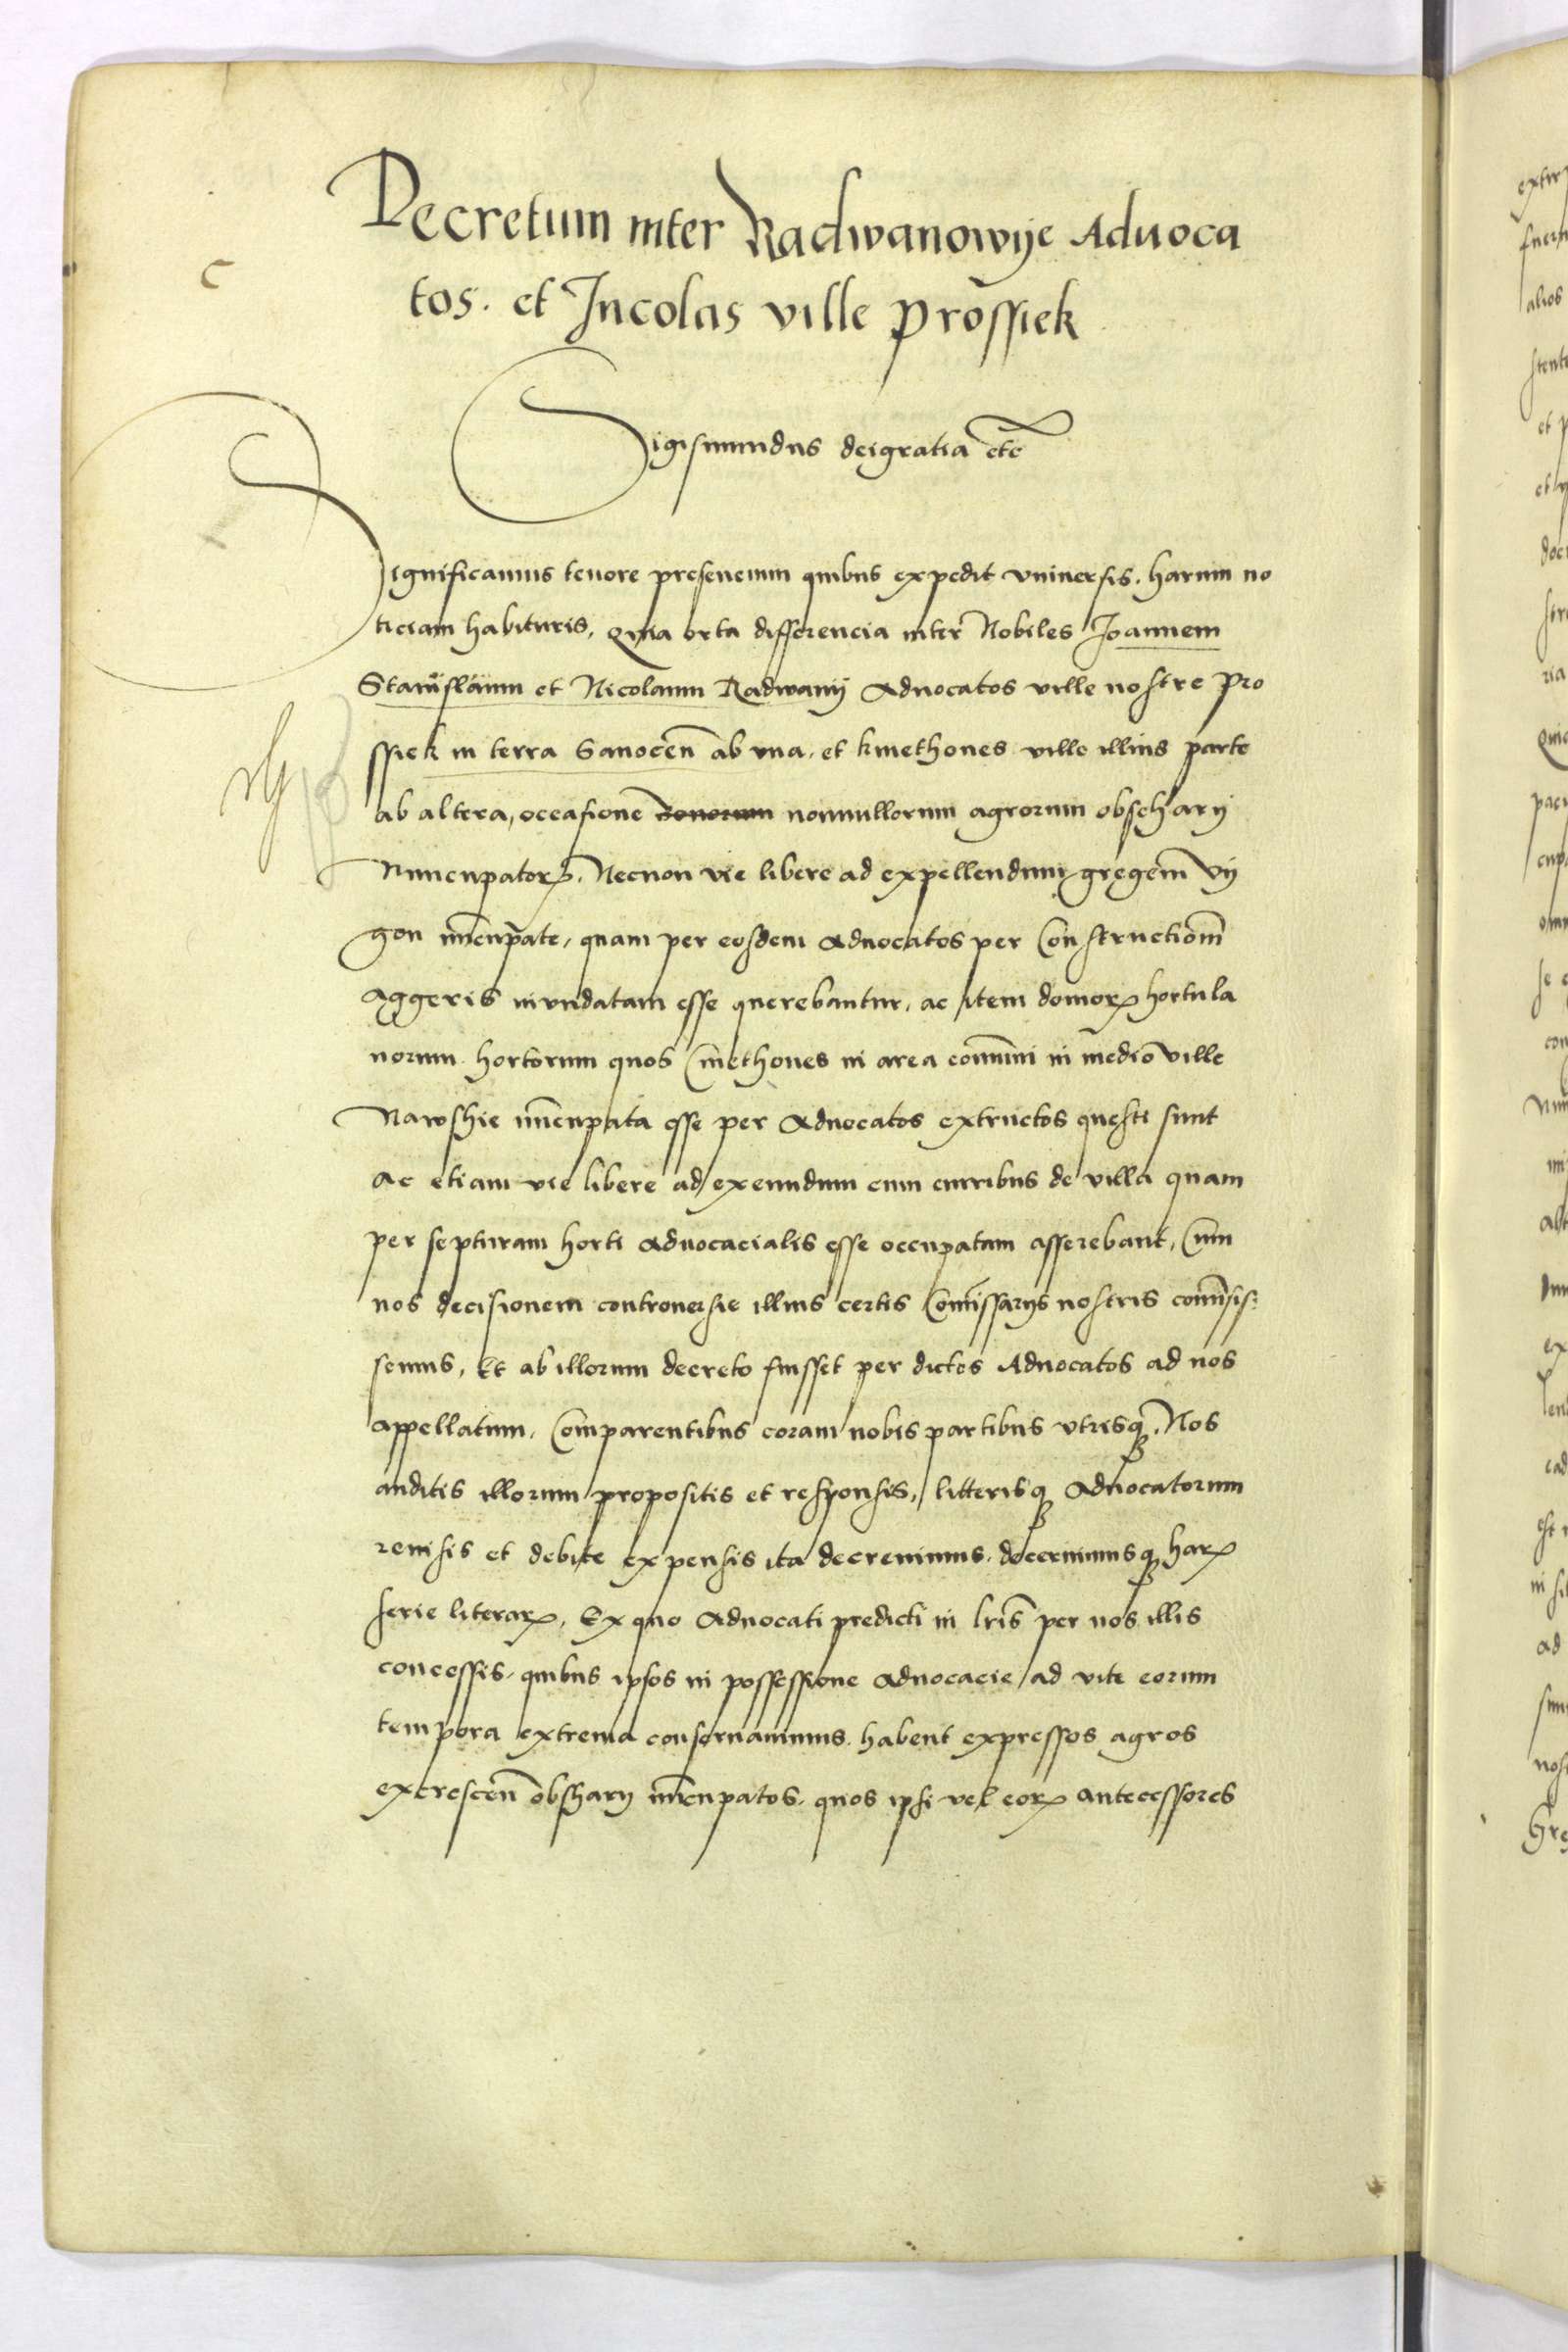 Decretum inter Radwanowye Aduoca
tos. et Incolas ville prossiek
Sigismundus dei gratia etc̃
Significamus tenore presencium quibus expedit vniuersis. harum no
ticiam habituris, Quia orta differencia inter Nobiles Joannem
Stanislaum et Nicolaum Radwanij Aduocatos ville nostre Pro
ssiek in terra Sanocen̄ ab vna. et kmethones ville illius parte
ab altera, occasione bonorum nonnullorum agrorum obschary
Nuncupatorꝝ. Necnon vie libere ad expellendum gregem̄ Vy
gon nūcupate, quam per eosdem Aduocatos per Constructiom̄
Aggeris inundatam esse querebantur, ac item domorꝝ hortula
norum hortorum quos Cmethones in area com̄uni in medio ville
Nawshie nūcupata esse per Aduocatos extructos questi sunt
Ac etiam vie libere ad exeundum cum curribus de villa quam
per septuram horti Aduocacialis esse occupatam asserebant, Cum
nos decisionem controuersie illius certis Com̄issarijs nostris com̄isis:
semus, Et ab illorum decreto fuisset per dictos Aduocatos ad nos
appellatum, Comparentibus coram nobis partibus vtrisqꝫ. Nos
auditis illorum propositis et responsis, litterisqꝫ Aduocatorum
reuisis et debite expensis ita decreuimus. decernimusqꝫ harꝝ
serie literarꝝ, Ex quo Aduocati predicti in lr̄is per nos illis
concessis. quibus ipsos in possessione Aduocacie ad vite eorum
tempora extrema conseruauimus. habent expressos agros
excrescen̄ obschary nūcupatos. quos ipsi vel eorꝝ antecessores